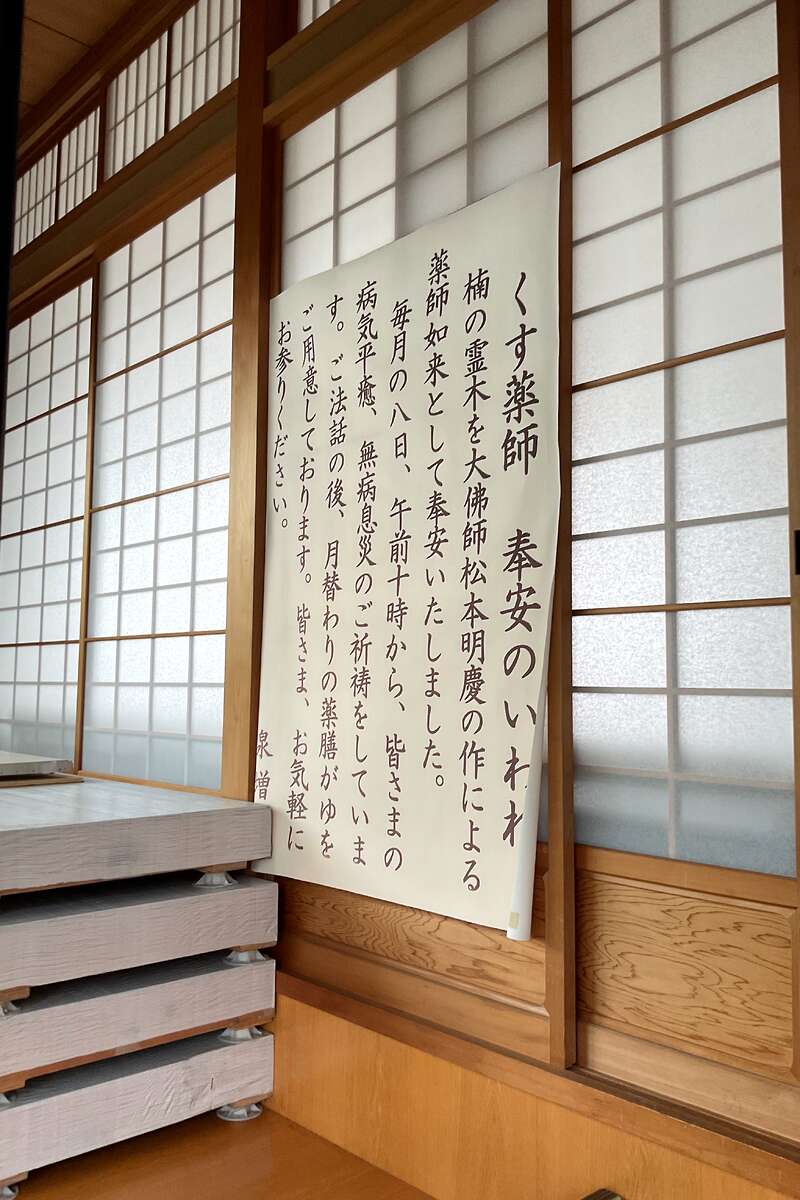 くす薬師　奉安のいわれ
楠の霊木を大佛師松本明慶の作による
薬師如来として奉安いたしました。
毎月の八日、午前十時から、皆さまの
病気平癒、無病息災のご祈祷をしていま
す。ご法話の後、月替わりの薬膳がゆを
ご用意しております。皆さま、お気軽に
お参りください。
泉增